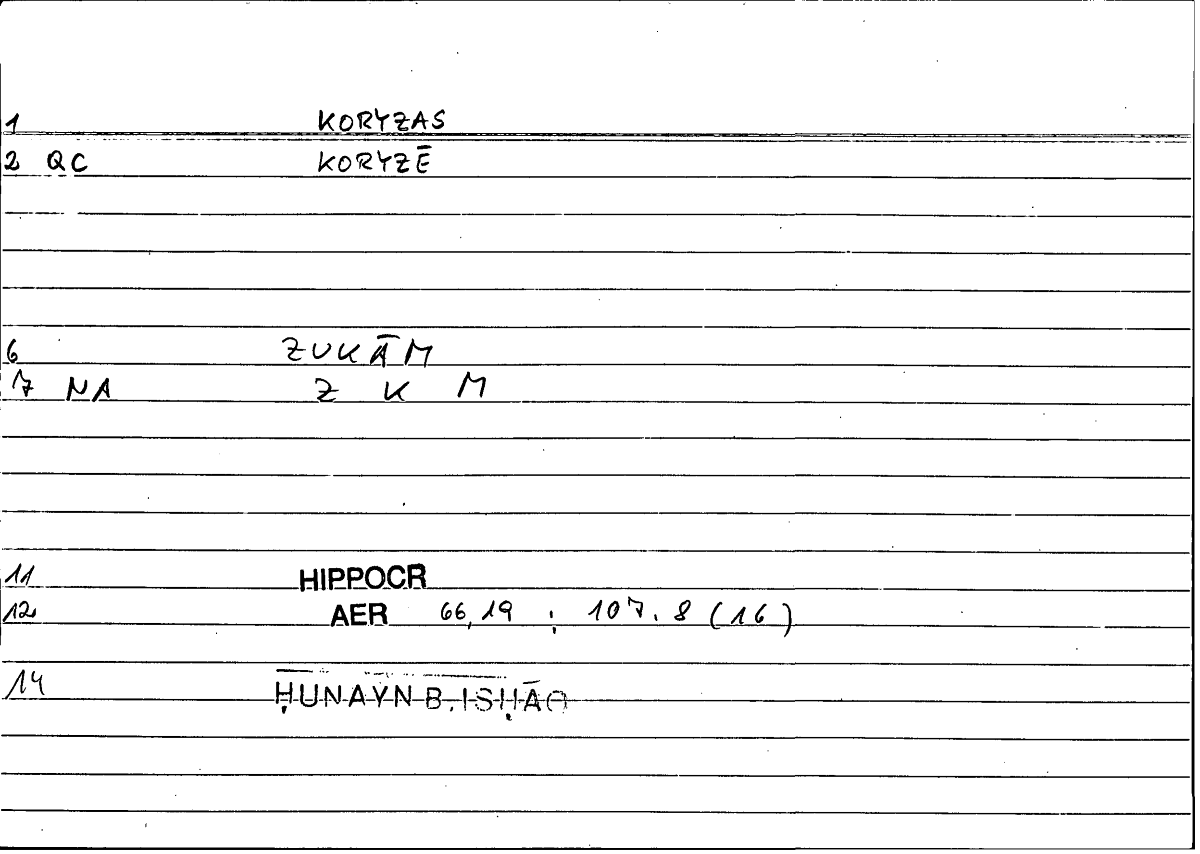 1 KORYZAS
2 QC KORYZĒ
6 ZUKĀM
7 NA Z K M
11 HIPPOCR
12 AER 66,19 ; 107.8 (16)
14 ḤUNAYN B. ISḤĀQ